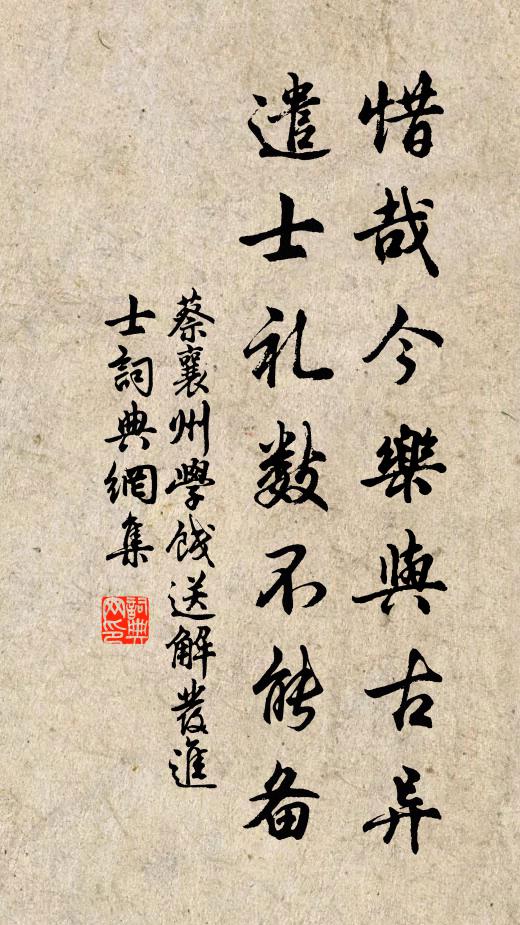 惜哉今樂與古异
遣士礼数不能备
蔡襄州學餞送解發進
士詞典網集
詞典
网印